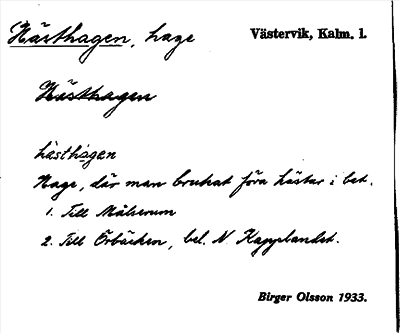 Hästhagen, hage Västervik, Kalm. l.
Hästhagen
hästhagen
Hage, där man brukat föra hästar i bet.
1. Till Målserum
2. Till Örbäcken, bel. N. Kapplandet.
Birger Olsson 1933.